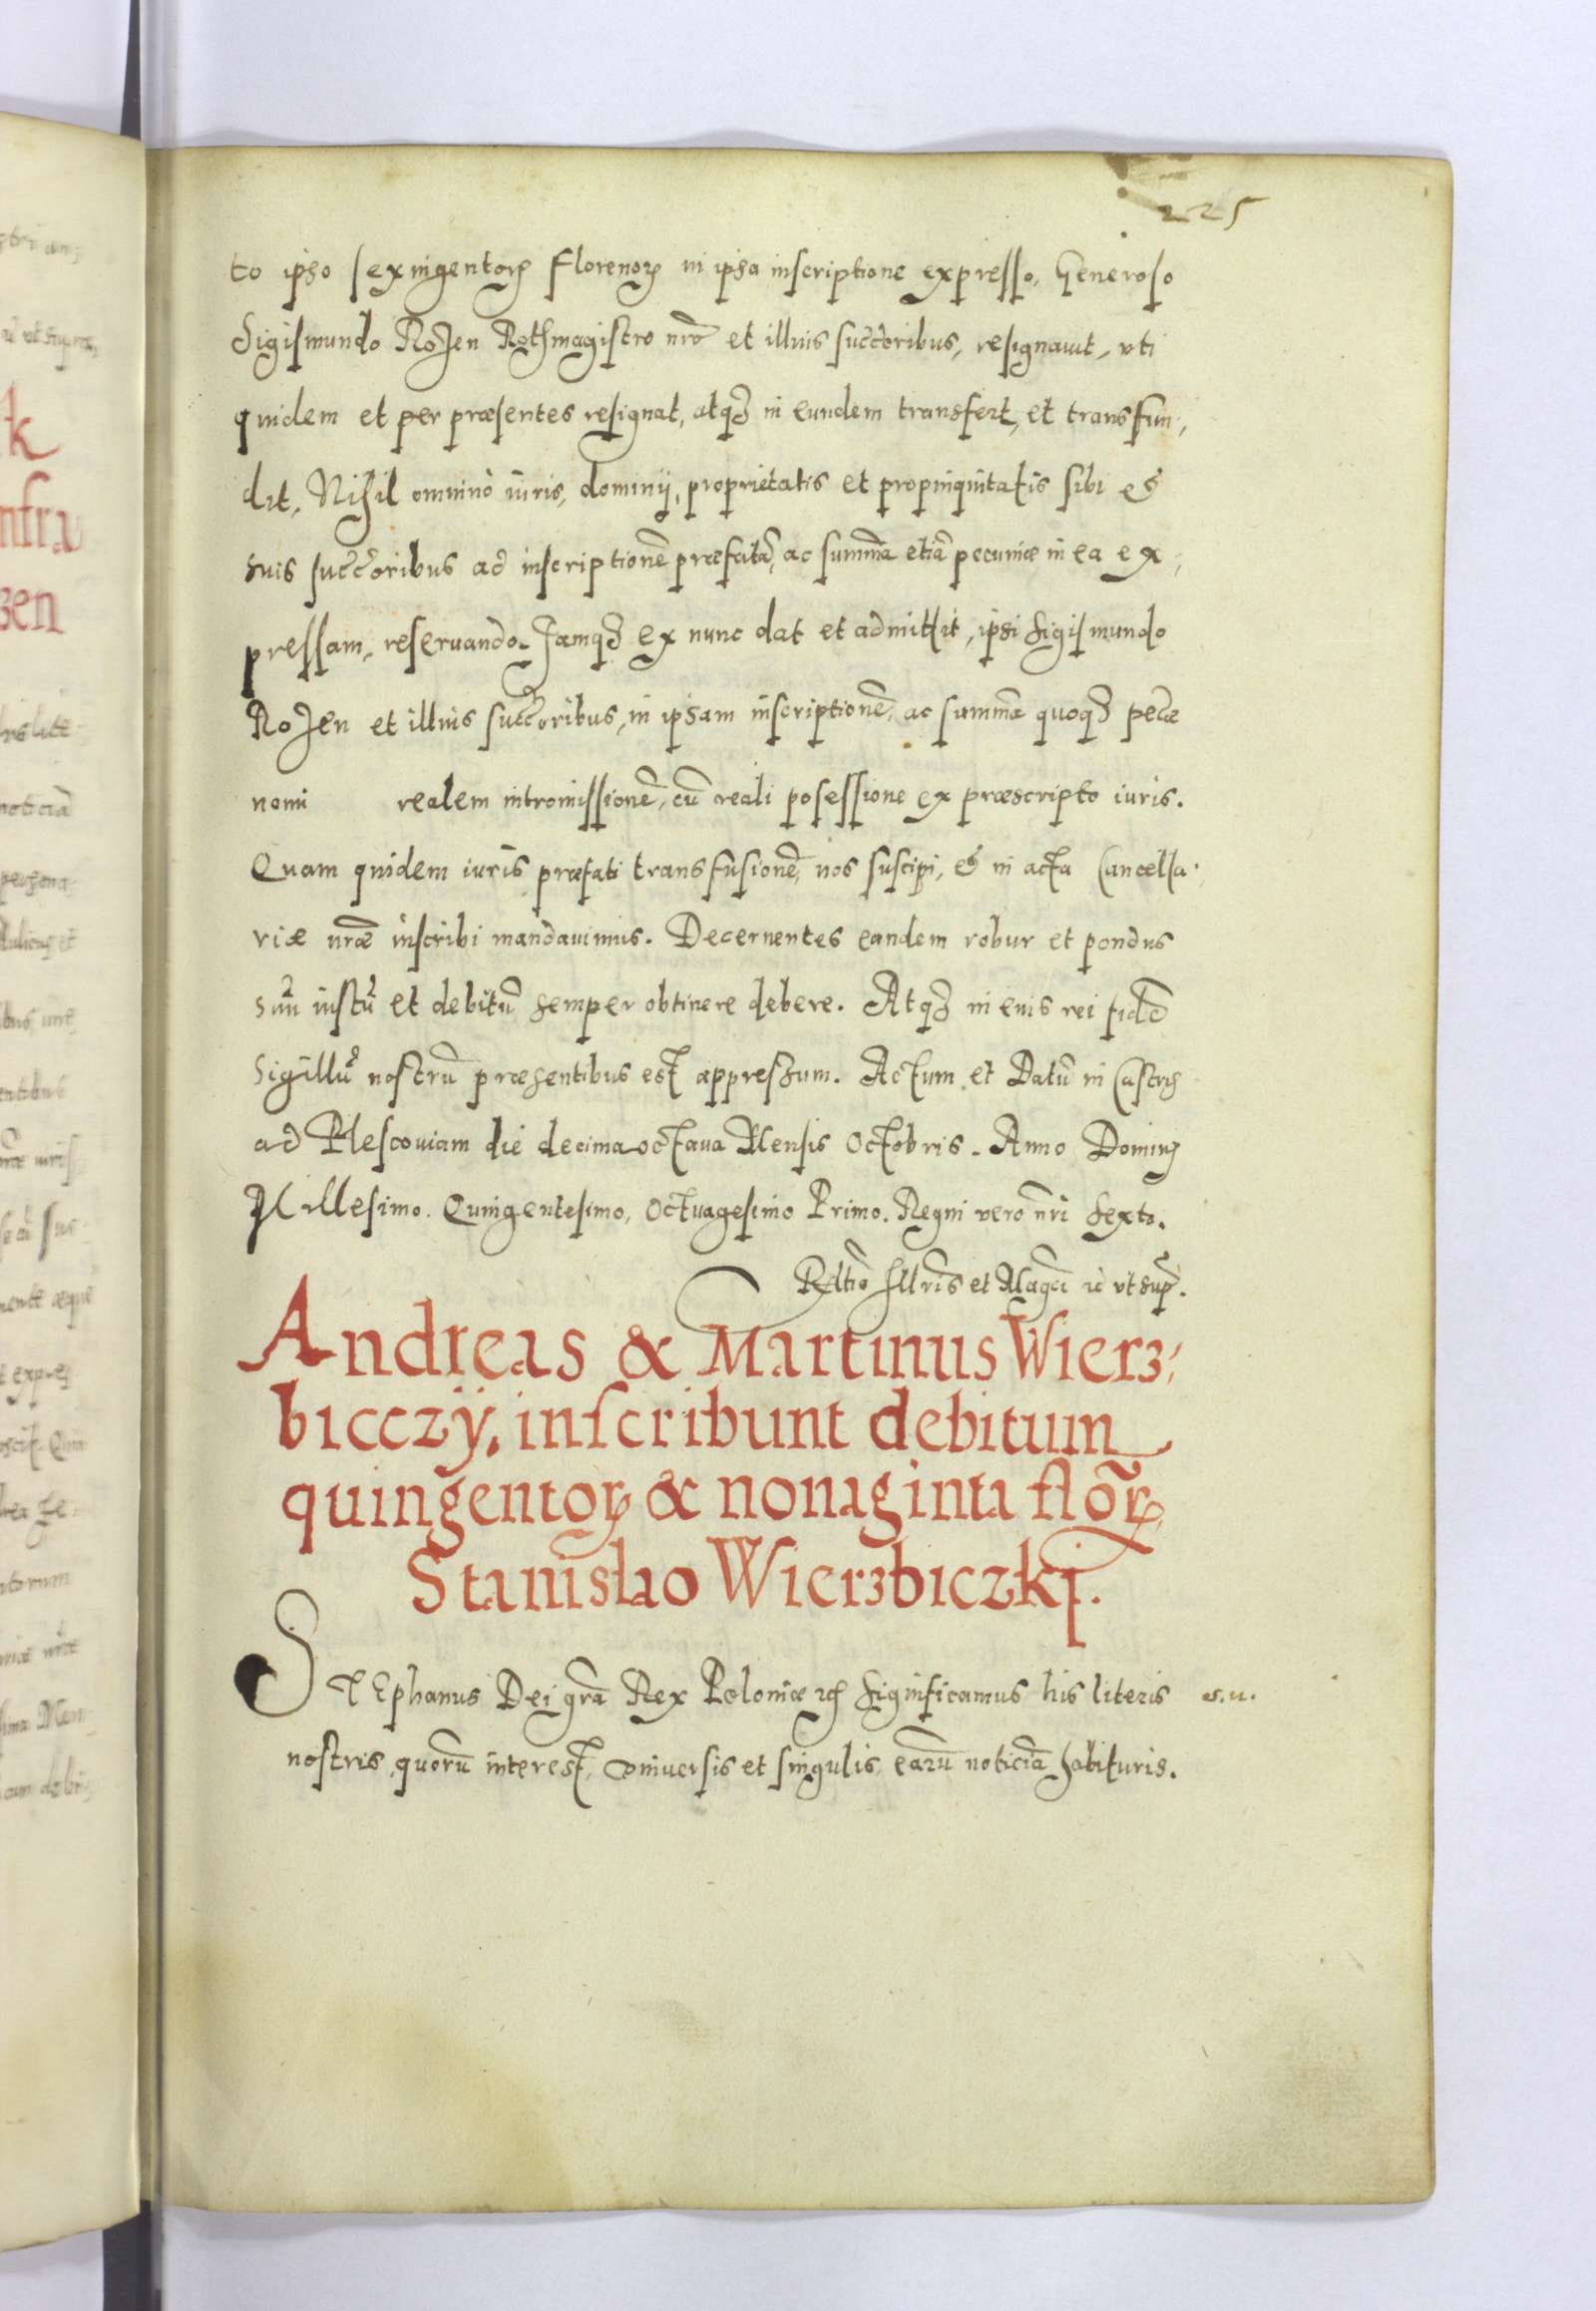 225
to ipso sexingentorꝝ Florenorꝝ in ipsa inscriptione expresso, Generoso
Sigismundo Rozen Rothmagistro nr̃o et illius succ̃oribus, resignauit, vti
quidem et per præsentes resignat, atqꝫ in eundem transfert, et transfun,
dit, Nihil omnino iuris, dominij, proprietatis et propinquitatis sibi et
suis succ̃oribus ad inscriptionẽ præfatã, ac summã etiã pecuniæ in ea ex,
pressam, reseruando. Jamqꝫ ex nunc dat et admittit, ipsi Sigismundo
Rozen et illius succ̃oribus, in ipsam inscriptionẽ, ac summã quoqꝫ pecæ̃
nomi realem intromissionẽ, cũ reali posessione ex præscripto iuris.
Quam quidem iuris præfati transfusionẽ, nos suscipi, et in acta Cancella,
riæ nræ̃ inscribi mandauimus. Decernentes eandem robur et pondus
suũ iustũ et debitũ semper obtinere debere. Atqꝫ in euis rei fidẽ
Sigillũ nostrũ præsentibus est appressum. Actum et Datũ in Castris
ad Plescouiam die decima octaua Mensis Octobris. Anno Domini
Millesimo. Quingentesimo, Octuagesimo Primo. Regni vero nr̃i Sexto.
Rel̃tio Illr̃is et Magc̃i ic̃ vt sup̃.
Andreas & Martinus Wierz,
bicczÿ, inscribunt debitum
quingentorꝝ & nonaginta flõrꝝ,
Stanislao Wierzbiczkj.
STEphanus Dei gr̃a Rex Poloniæ ꝛc̃ Significamus his literis
s.u.
nostris, quorũ interest, vniuersis et singulis, earũ noticiã habituris.